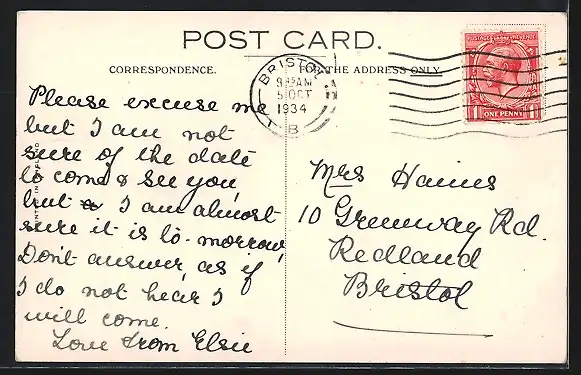 POST CARD.
CORRESPONDENCE.
FOR THE ADDRESS ONLY.
BRISTOL
9 15 AM
5 OCT
1934
B
POSTAGE REVENUE
1 ONE PENNY 1
Please excuse me
but I am not
sure of the date
to come & see you
but I am almost
sure it is to-morrow
Don't answer, as if
I do not hear I
will come.
Love from Elsie
Mrs Haines
10 Greenway Rd.
Redland
Bristol